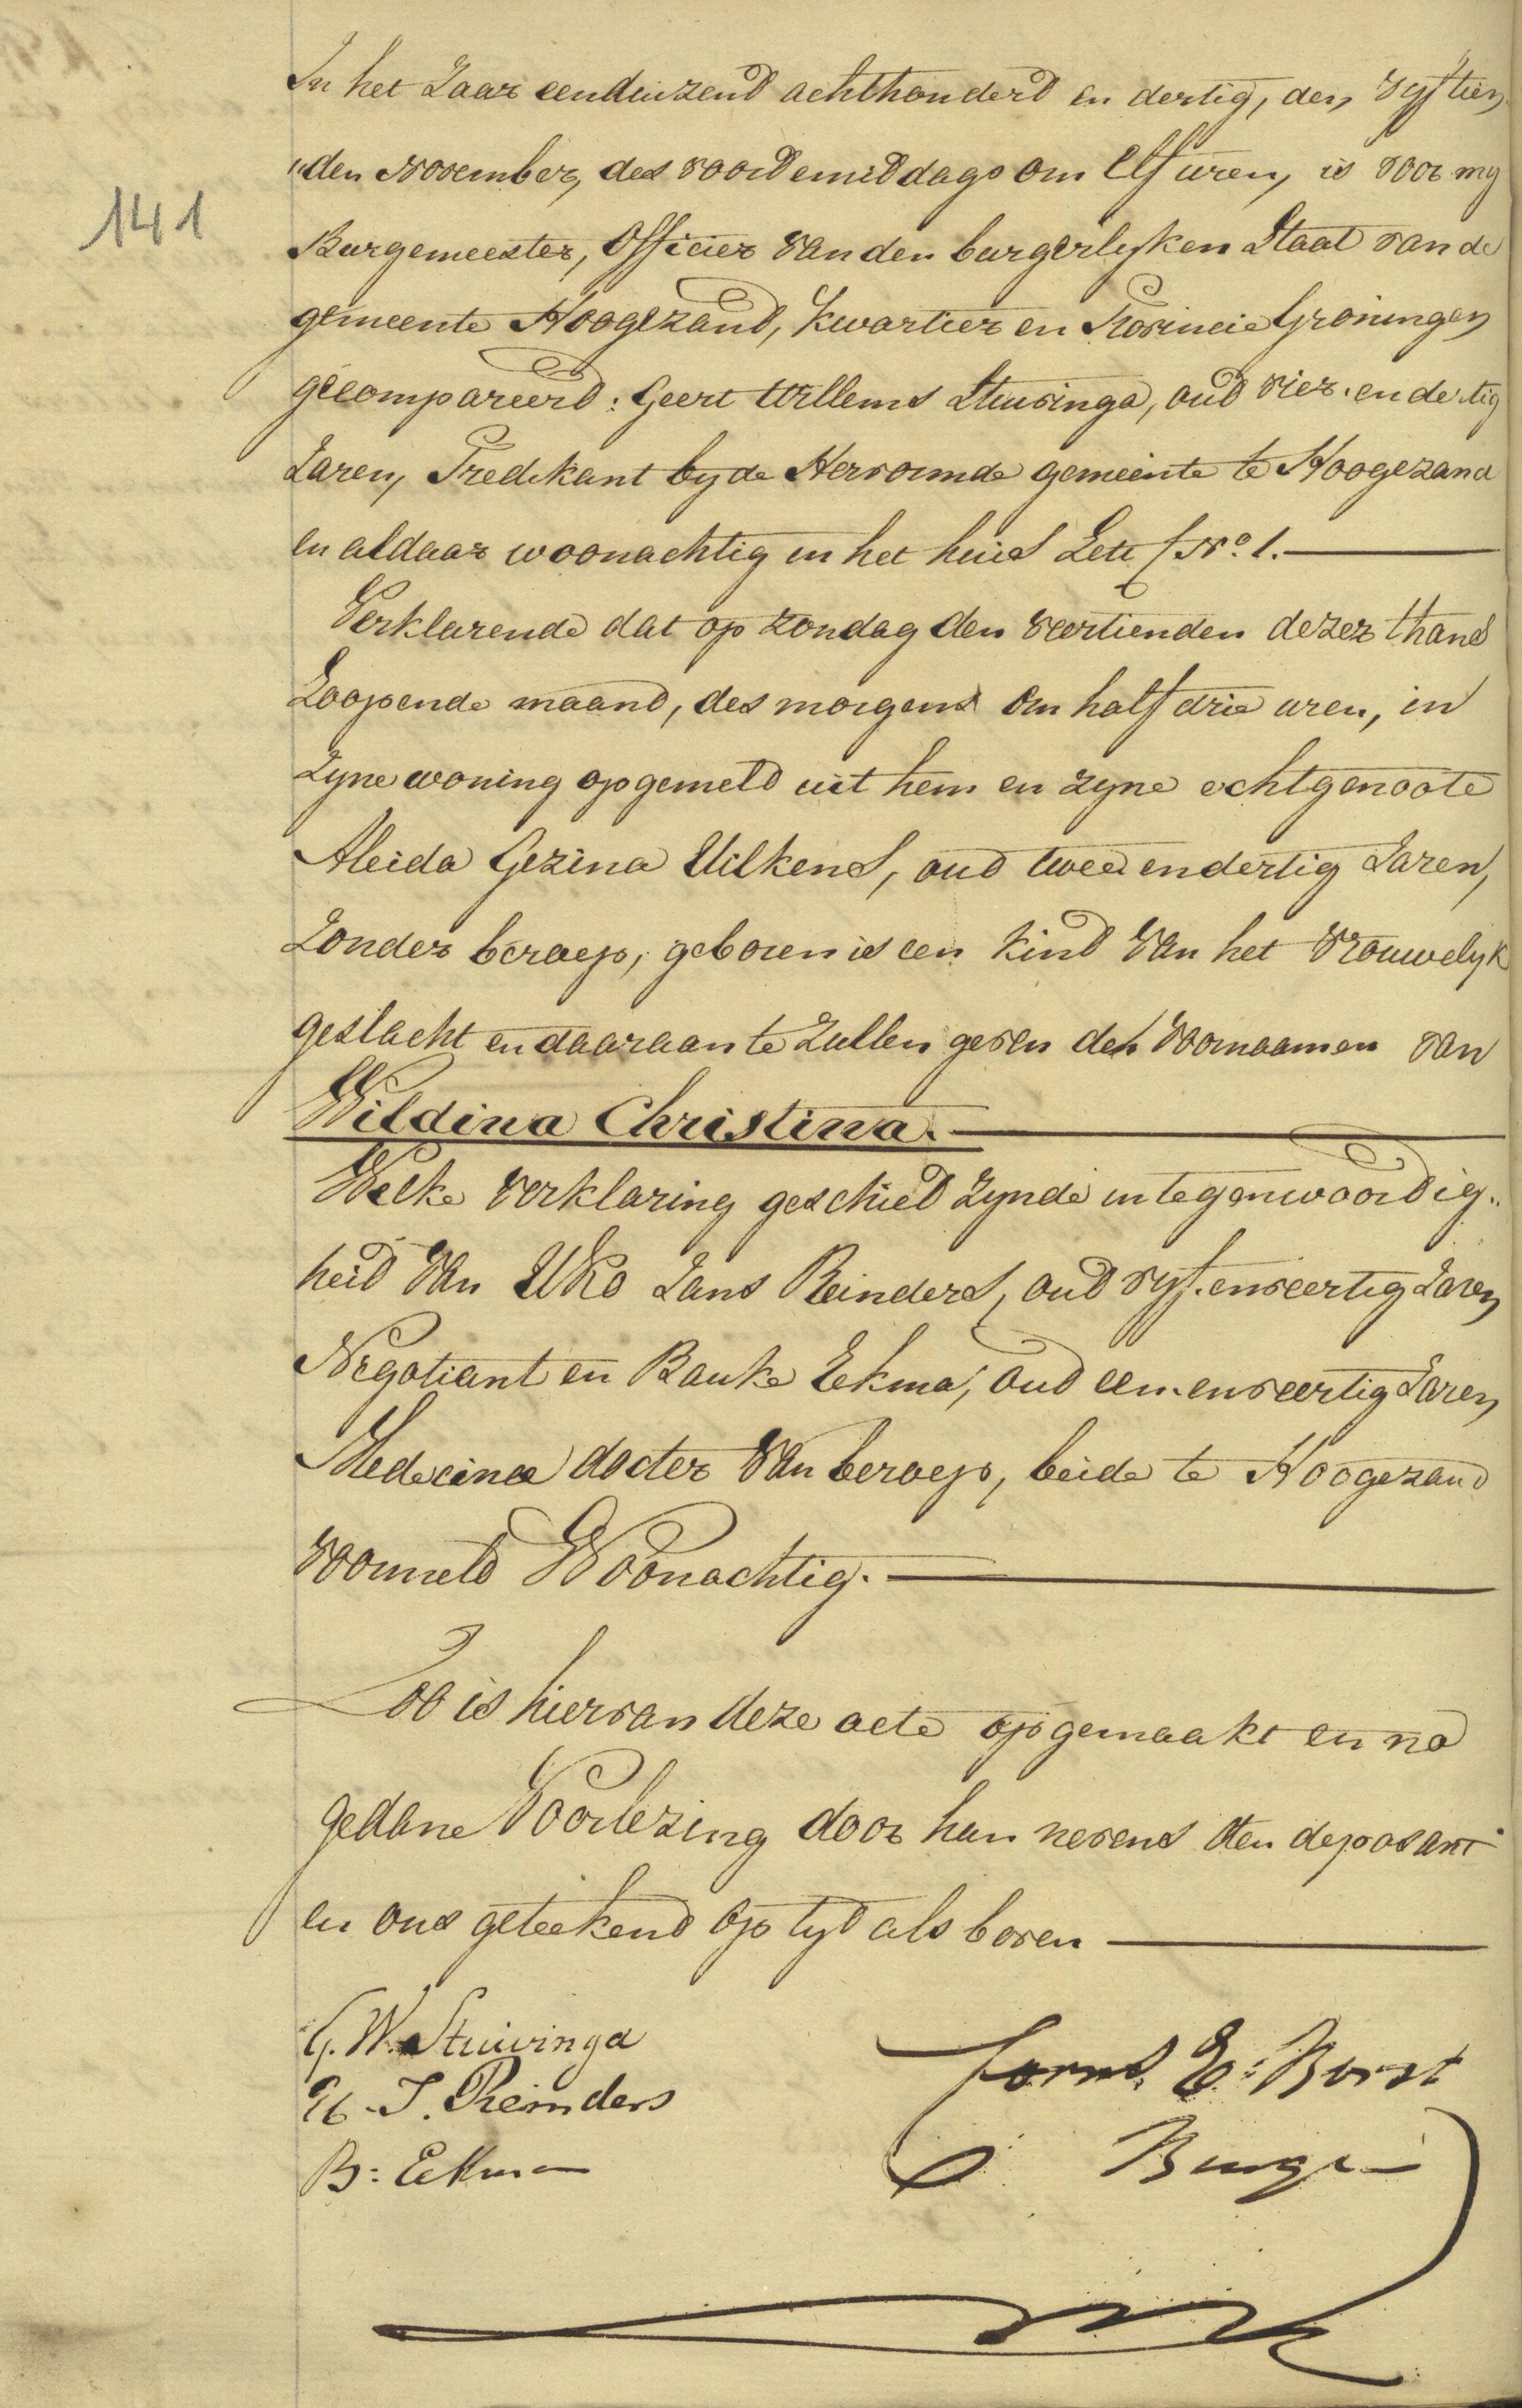 141
In het Jaar eenduizend achthonderd en dertig, den vyftien
"den November, des voordemiddags om Elf uren, is voor my
Burgemeester, Officier van den burgerlyken Staat van de
gemeente Hoogezand, Kwartier en Provincie Groningen
gecompareerd: Geert Willems Stuivinga, oud vier en dertig
Jaren, Predikant by de Hervormde gemeente te Hoogezand
en aldaar woonachtig in het huis Lett No. 1.
Verklarende dat op zondag den veertienden dezer thans
Loopende maand, des morgens om half drie uren, in
zyne woning opgemeld uit hem en zyne echtgenoote
Aleida Gezina Uilkens, oud twee en dertig Jaren,
Zonder beroep, geboren is een Kind van het Vrouwelyk
geslacht en daaraan te Zullen geven den Voornaamen van
Wildina Christina.
Welke verklaring geschied Zynde in tegenwoordig..
heid van Uko Jans Reinders, oud vyf en veertig Jaren
Negotiant en Bauke Eekma, oud een en veertig Jaren
Medecinae docter van beroep, beide te Hoogezand
voormeld Woonachtig.
Zoo is hiervan deze acte opgemaakt en na
gedane Voorlezing door hun nevens den deposant
en ons geteekend op tyd als boven
G. W. Stuivinga
U. J. Reinders
B: Eekma
Corns. E: Borst
Burgr